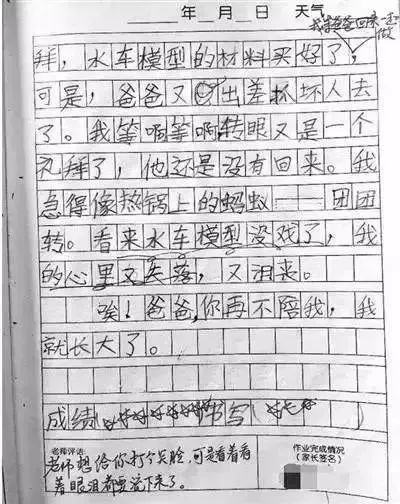 年 月 日 天气
我等爸爸回来一起
做
拜，水车模型的材料买好了，
可是，爸爸又出差抓坏人去
了。我等啊等啊转眼又是一个
礼拜了，他还是没有回来。我
急得像热锅上的蚂蚁——团团
转。看来水车模型没戏了，我
的心里又失落，又沮丧。
唉！爸爸，你再不陪我，我
就长大了。
成绩 书写（ ）
老师评语：
老师想给你打个笑脸，可是看着看
着眼泪都要流下来了。
作业完成情况
（家长签名）